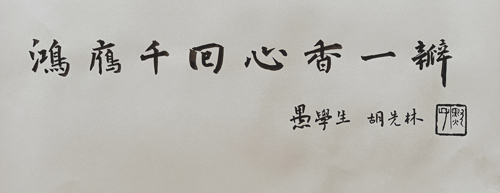 鴻鴈千回心香一瓣
愚學生 胡先林